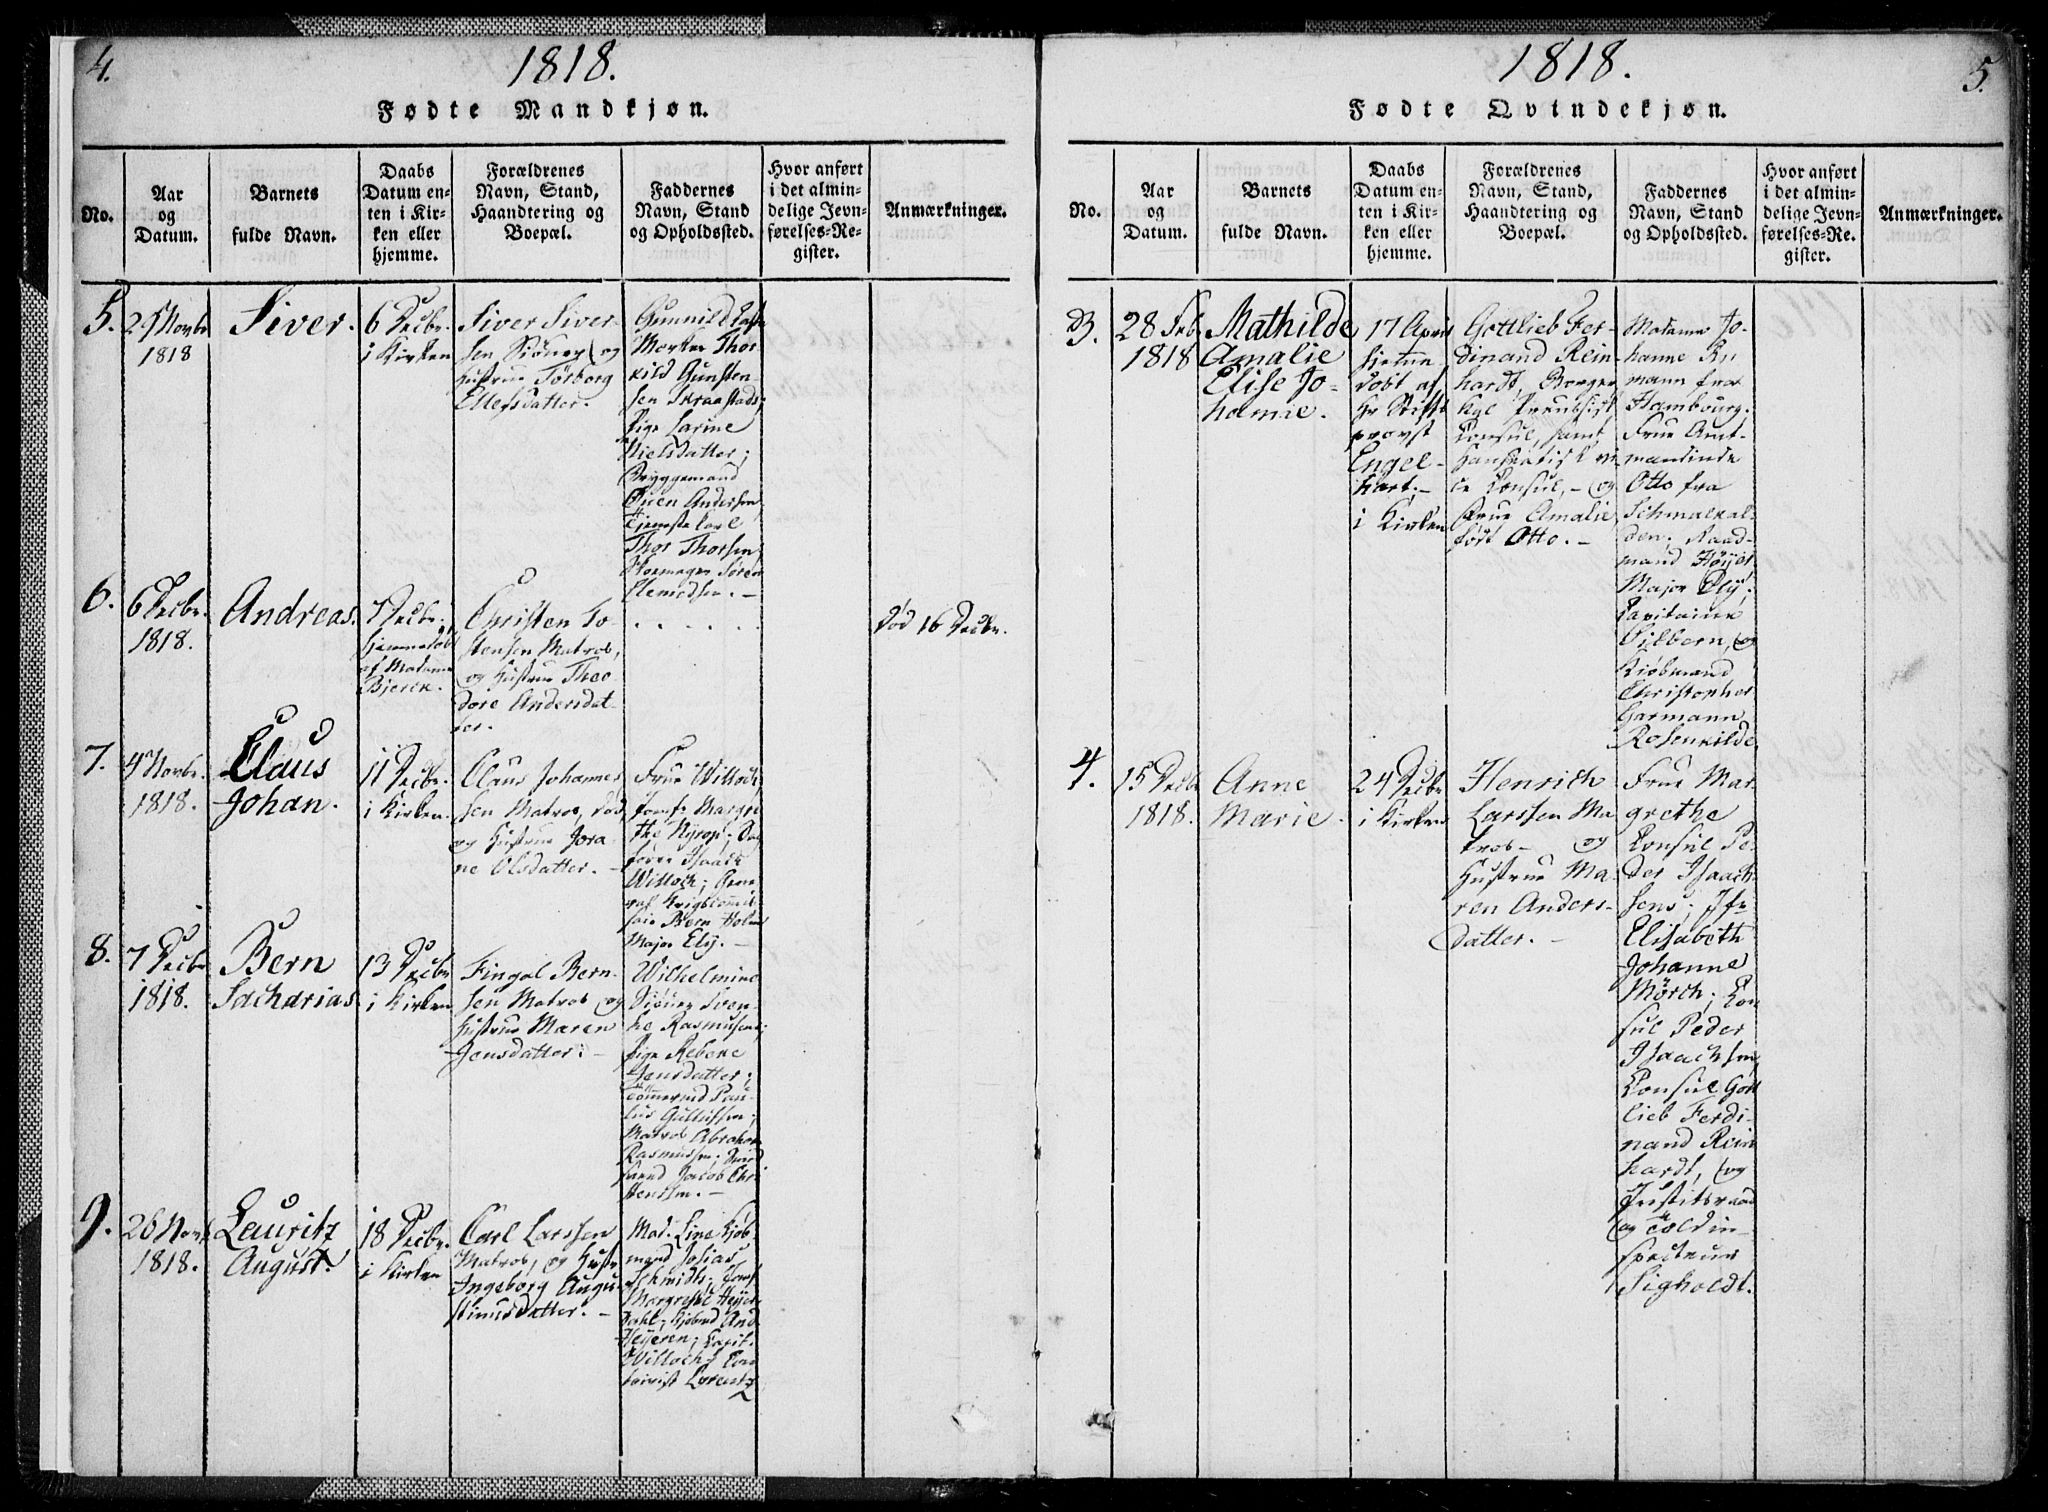 4.
1818.
Fødte Mandkjøn.
No.
Aar
og
Datum.
Barnets
fulde Navn.
Daabs
Datum en-
ten i Kir-
ken eller
hjemme.
Forældrenes
Navn, Stand,
Haandtering og
Boepæl.
Faddernes
Navn, Stand
og Opholdssted.
Hvor anført
i det almin-
delige Jevn-
førelses-Re-
gister.
Anmærkninger.
5.
1818
Siver.
6 Decbr.
i Kirken
Siver Siver-
sen og
Hustrue Törborg
Ellefsdatter.
Gunnild
Morten Thor
kild Gunsten-
sen
Pige Larine
Nielsdatter;
Bryggemand
Ouen Andersen
Tjeneste Karl
Thor Thorsen
6.
6 Decbr.
1818.
Andreas.
7 Decbr.
hjemmedöbt
af Madame
Bjerck.
Christen To
stensen Matros,
og Hustrue Theo
dore Andersdat-
ter.
. . . . .
död 16 Decbr.
7.
4 Novbr.
1818.
Claus
Johan.
11 Decbr.
i Kirken.
Claus Johannes
sen Matros, död
og Hustrue Jora
ne Olsdatter. -
Frue Willoch,
Jomf: Margre
the Nyrop;
Isaach
Willoch;
Bern Holm
Major Ely. -
8.
7 Decbr
1818.
Bern
Sacharias
13 Decbr
i Kirken
Fingal Bern-
sen Matros og
Hustrue Maren
Jensdatter. -
Wilhelmine
ke Rasmusens;
Pige Rebekke
Jensdatter;
Tömmermd Pau-
lus Gullufsen;
Matros Abraham
Rasmussen;
Jacob Chri-
stensen. -
9.
26 Novb
1818.
Lauritz
August.
18 Decbr.
i Kirken
Carl Larssen
Matros, og Hustr
Ingeborg Augu-
stinusdatter. -
Mad. Line Kjöb-
mand Josias
Schmidts; Jomf
Margrethe Heyer
dahl; Kjöbmd And
Heyeren; Capit.
Willoch; Con
toirist Lorentz
1818.
5.
Fødte Qvindekjøn.
No.
Aar
og
Datum.
Barnets
fulde Navn.
Daabs
Datum en-
ten i Kir-
ken eller
hjemme.
Forældrenes
Navn, Stand,
Haandtering og
Boepæl.
Faddernes
Navn, Stand
og Opholdssted.
Hvor anført
i det almin-
delige Jevn-
førelses-Re-
gister.
Anmærkninger.
3.
28 Feb
1818
Mathilde
Amalie
Elise Jo-
hanne.
17 April
döbt af
Hr Stifts
provst
Engel-
hart; -
i Kirken
Gottlieb Fer-
dinand Rein-
hardt, Borger
Kgl Preussisk
Consul, samt
Hanseatisk vi-
ce Consul, - og
Frue Amalie
född Otto. -
Madame Jo-
hanne
mann fra
Hambourg.
Frue Amt-
mandinde
Otto fra
Schmalkal-
den; Raad-
mand Höyer
Major Ely.
Capitaine
Dilbern, og
Kiöbmand
Christopher
Garmann
Rosenkilde
4.
15 Decbr
1818.
Anne
Marie.
24 Decbr
i Kirken
Henrich
Larssen Ma
tros- og
Hustrue Ma-
ren Anders-
datter. -
Frue Mar-
grethe
Consul Pe-
der Isaach-
sens; Jfr
Elisabeth
Johanne
Mörch; Con
sul Peder
Isaachsen
Consul Gott
lieb Ferdi-
nand Rein
hardt, og
Justitsraad
og Toldin-
specteur
Sigholdt.